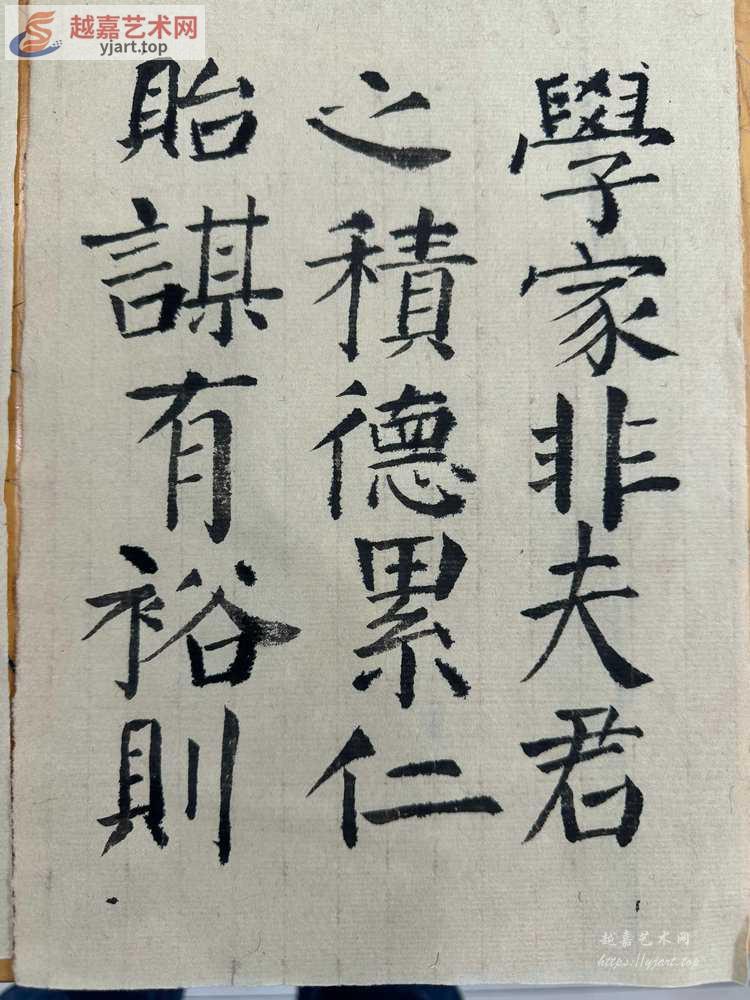 越嘉艺术网
yjart.top
學家非夫君
之積德累仁
貽謀有裕則
越嘉艺术网
https://yjart.top